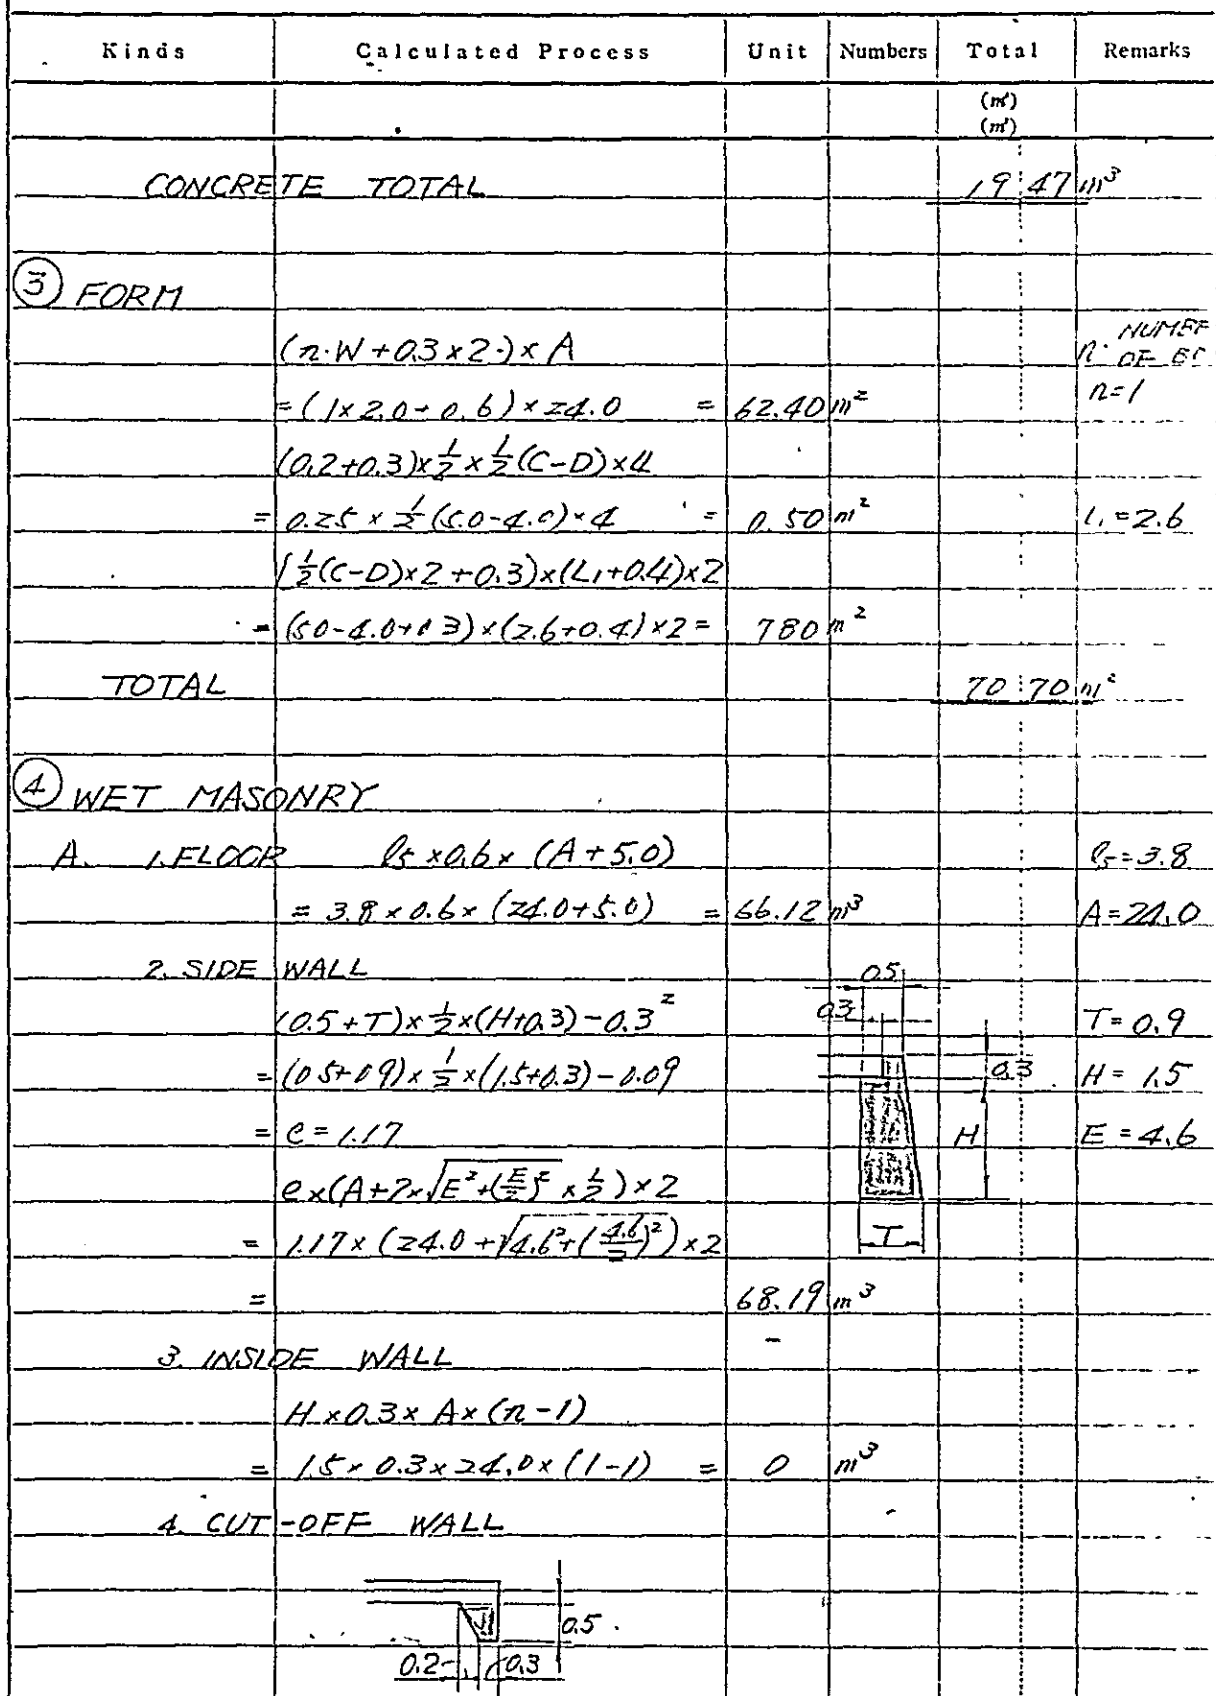 Kinds Calculated Process Unit Numbers Total Remarks
(m³)
(m²)
CONCRETE TOTAL 19 47 m³
③ FORM
(n·W + 0.3 × 2) × A n: NUMBER OF
= (1 × 2.0 + 0.6) × 24.0 = 62.40 m² n=1
(0.2+0.3) × 1/2 × 1/2 (C-D) × 4
= 0.25 × 1/2 (5.0-4.0) × 4 = 0.50 m² L₁ = 2.6
(1/2 (C-D) × 2 + 0.3) × (L₁+0.4) × 2
= (5.0-4.0+0.3) × (2.6+0.4) × 2 = 7.80 m²
TOTAL 70 70 m²
④ WET MASONRY
A. 1. FLOOR ℓ₅ × 0.6 × (A + 5.0) ℓ₅ = 3.8
= 3.8 × 0.6 × (24.0+5.0) = 66.12 m³ A = 24.0
2. SIDE WALL 0.5
(0.5 + T) × 1/2 × (H+0.3) - 0.3² 0.3 T = 0.9
= (0.5+0.9) × 1/2 × (1.5+0.3) - 0.09 0.3 H = 1.5
= e = 1.17 H E = 4.6
e × (A + 2 × √E² + (E/2)² × 1/2) × 2
= 1.17 × (24.0 + √4.6² + (4.6/2)²) × 2 T
= 68.19 m³
3. INSIDE WALL -
H × 0.3 × A × (n-1)
= 1.5 × 0.3 × 24.0 × (1-1) = 0 m³
4. CUT-OFF WALL
0.5
0.2 0.3